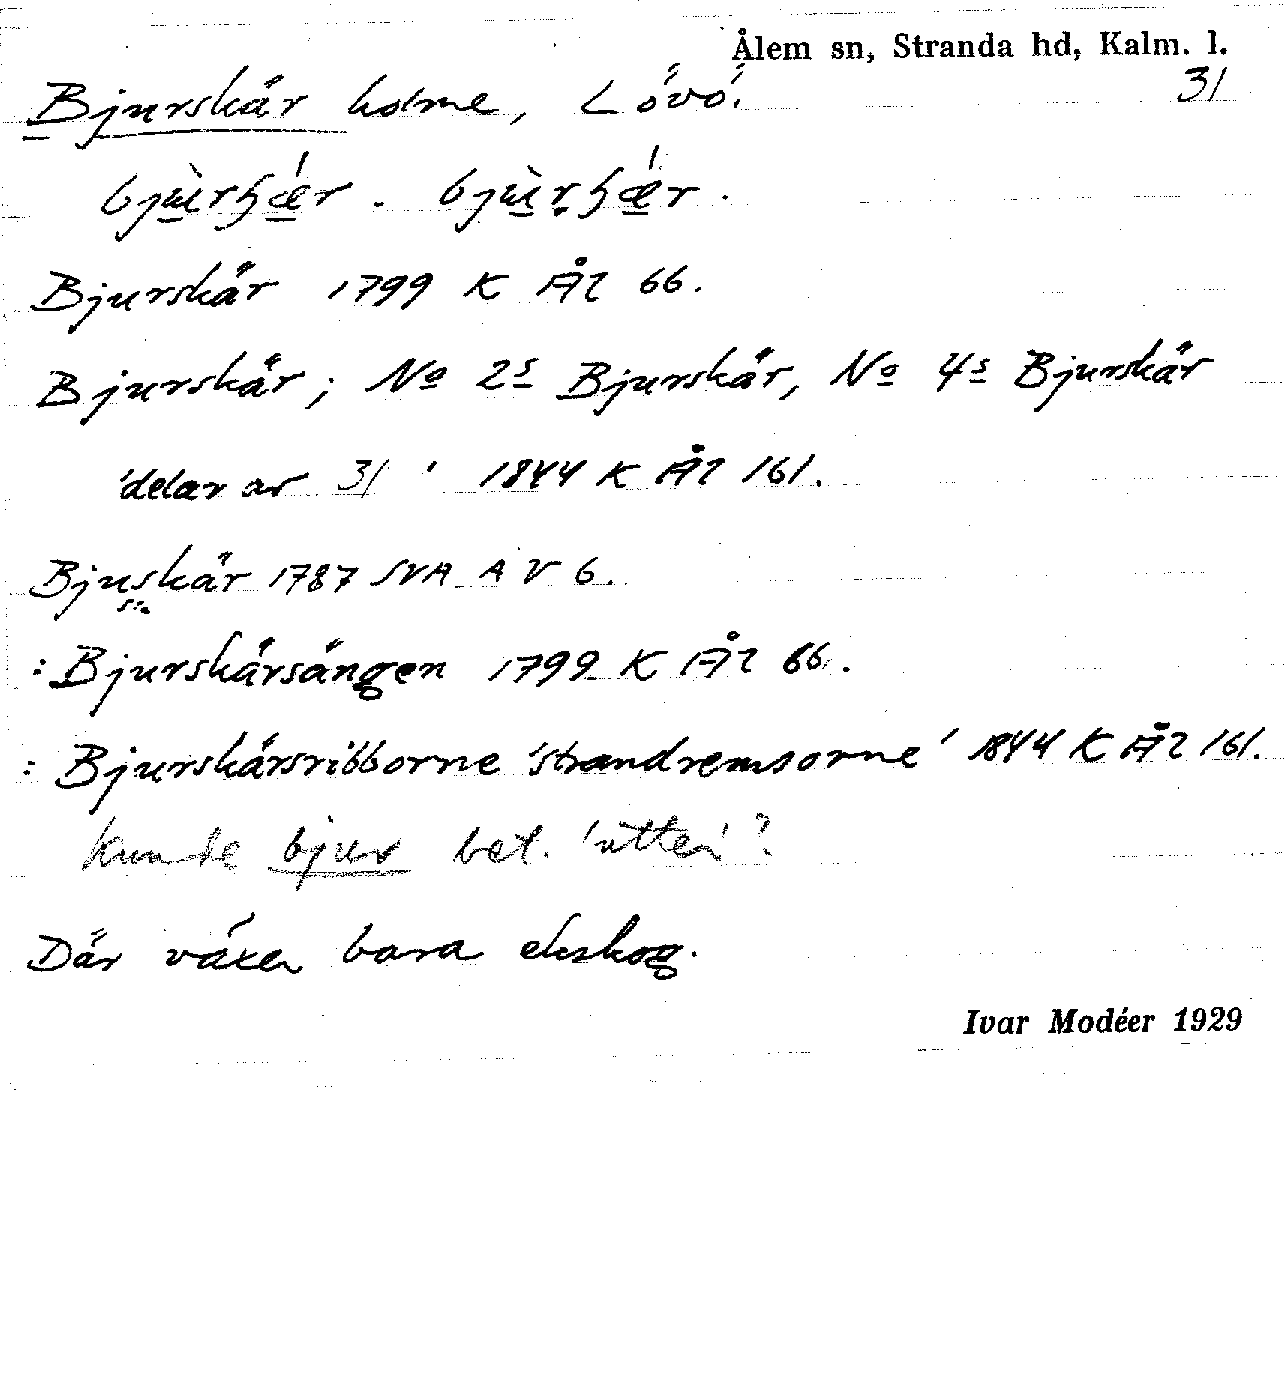 Ålem sn, Stranda hd, Kalm. l.
31
Bjurskär holme, Lövö.
Bjurskär 1799 K Ål 66.
Bjurskär; No 2s Bjurskär, No 4s Bjurskär
'delar av 31' 1844 K Ål 161.
Bjuskär 1787 SVA A V 6.
sic
: Bjurskärsängen 1799 K Ål 66.
: Bjurskärsribborne 'strandremsorne' 1844 K Ål 161.
Kunde bjur bet. 'utter'?
Där växer bara ekskog.
Ivar Modéer 1929